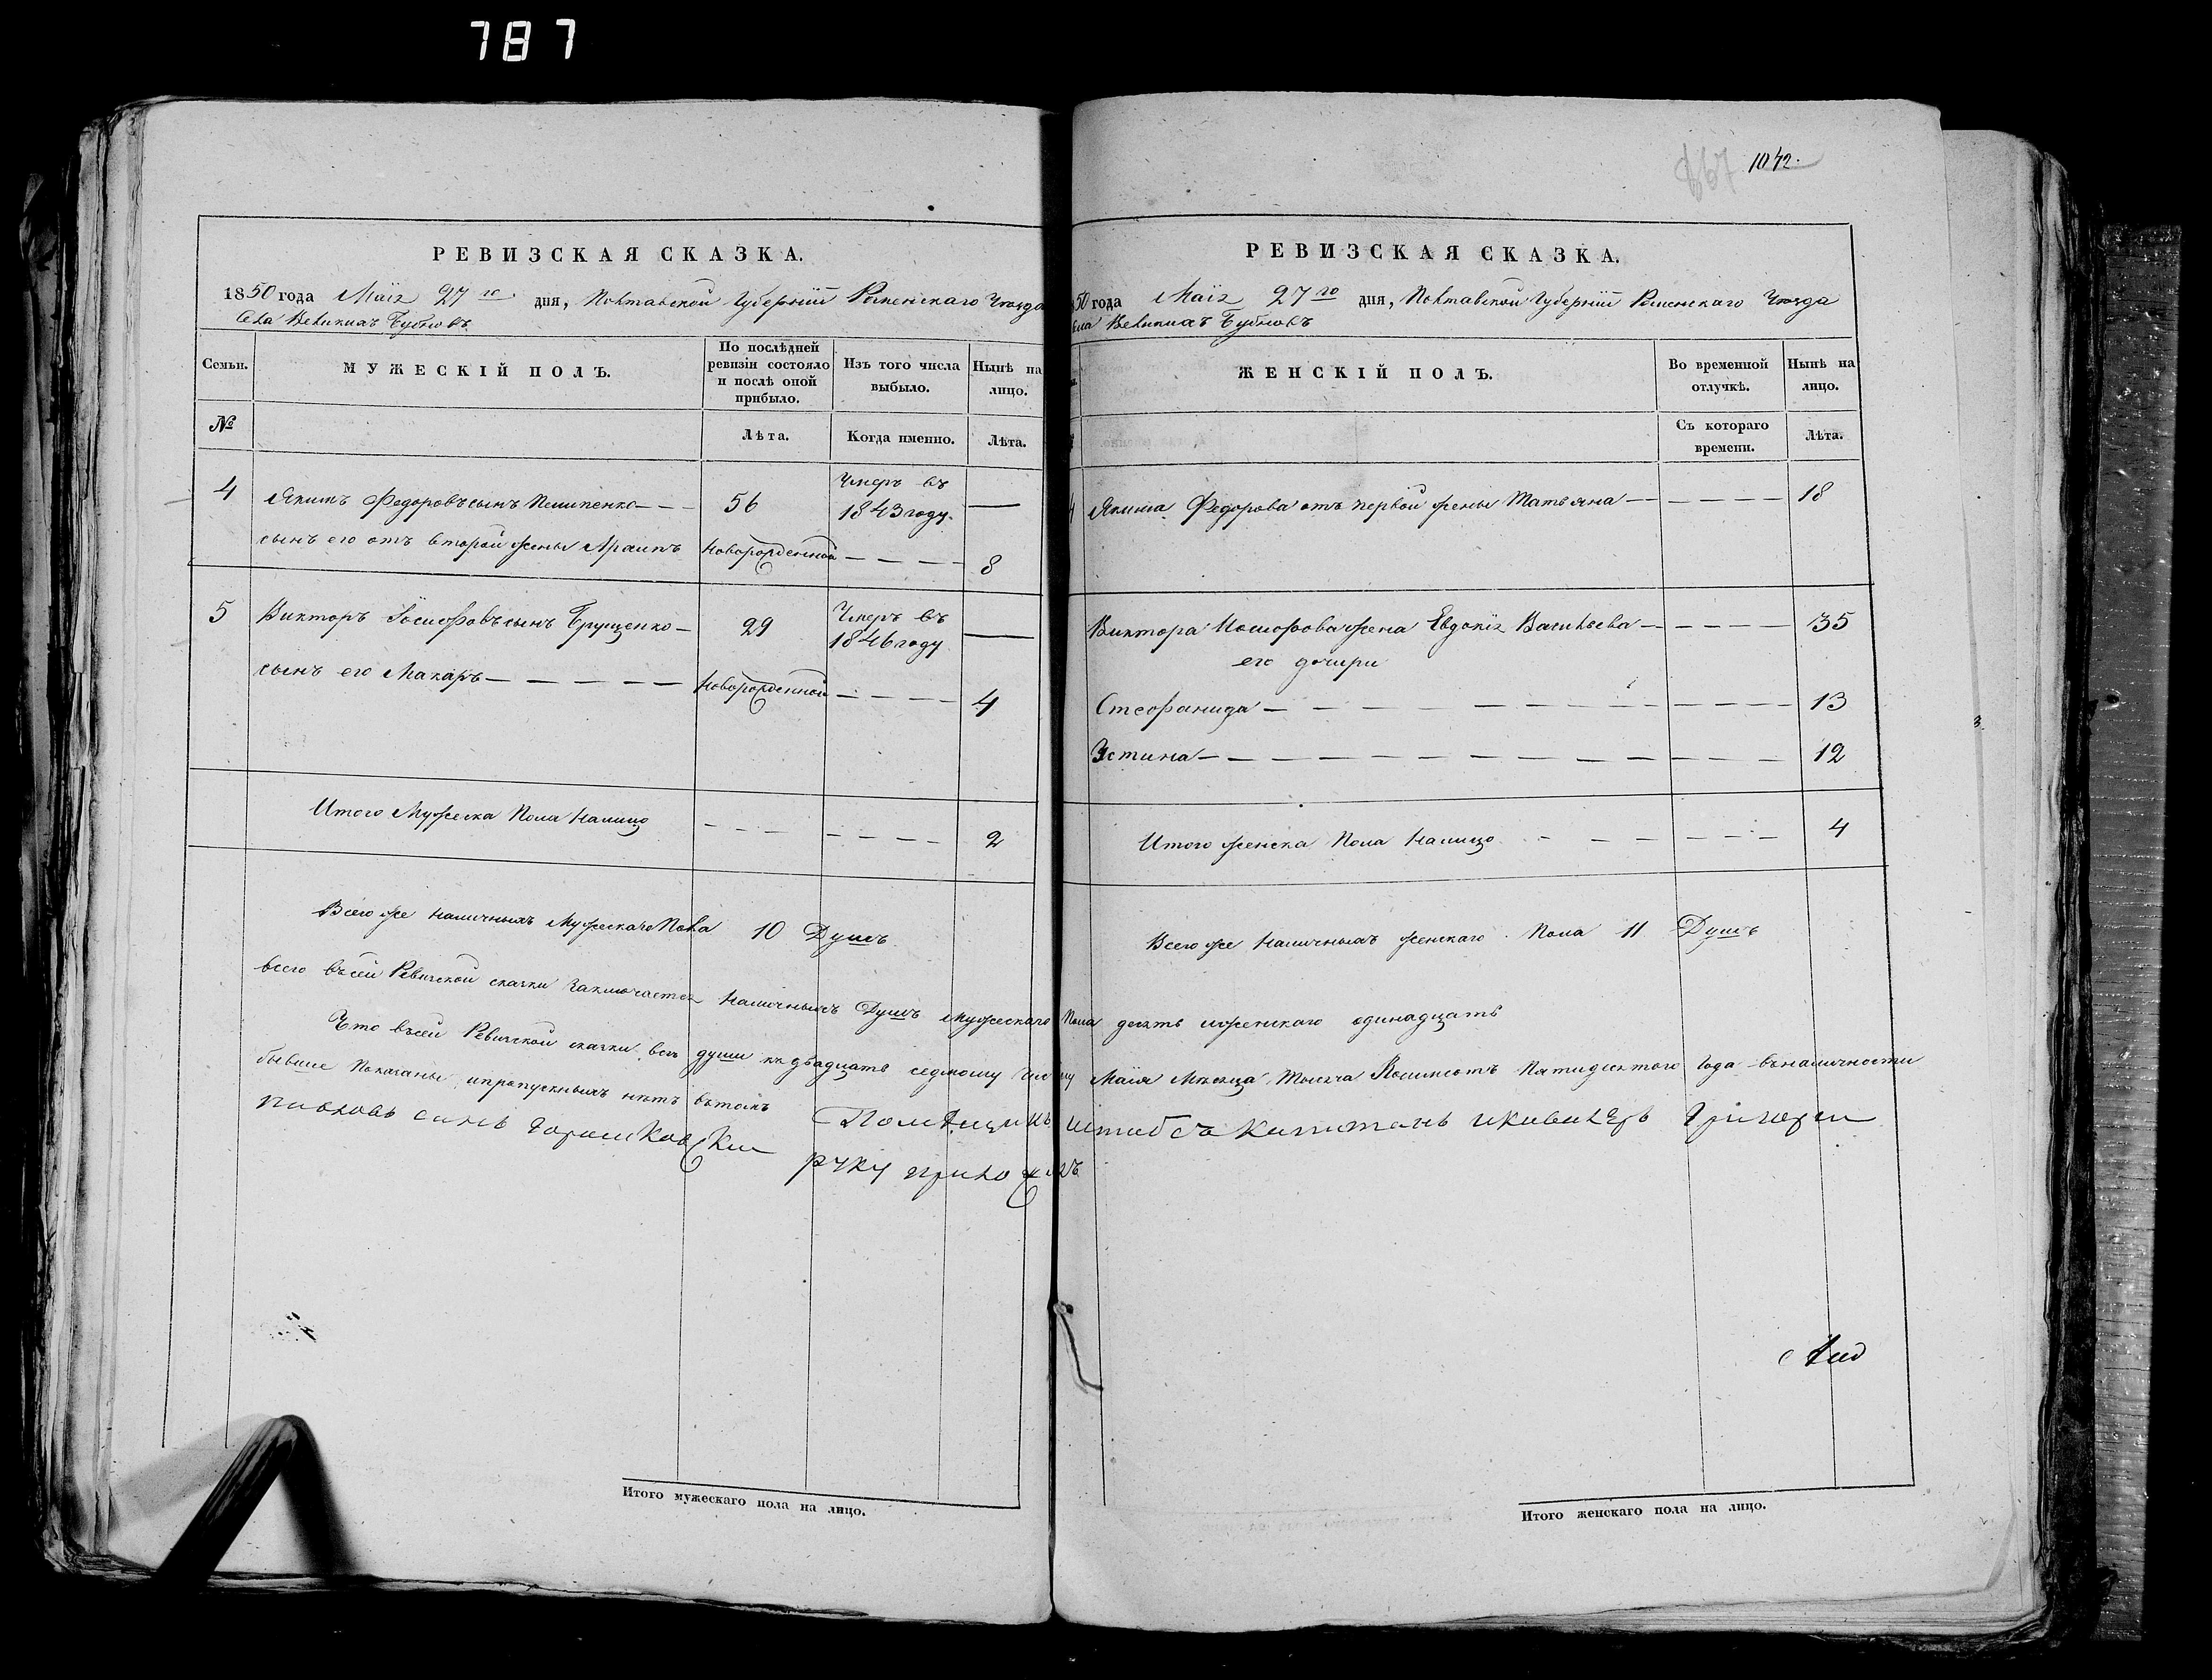 787
РЕВИЗСКАЯ СКАЗКА.
1850 года Маія 27го дня, Полтавской Губерніи Роменскаго Уезда
Села Великихъ Бубновъ
Семьи.
МУЖЕСКІЙ ПОЛЪ.
По послѣдней
ревизіи состояло
и послѣ оной
прибыло.
Изъ того числа
выбыло.
Нынѣ на
лицо.
№
Лѣта.
Когда именно.
Лѣта.
4 Якимъ Федоровъ сынъ 56 Умеръ въ
1843 году.
сынъ его отъ второй жены новорожденной 8
5 Викторъ Іосифовъ сынъ Грущенко 29 Умеръ въ
1846 году
сынъ его Макаръ новорожденной 4
Итого Мужеска Пола Налицо 2
Всего же наличныхъ Мужескаго Пола 10 Душъ
1042.
РЕВИЗСКАЯ СКАЗКА.
50 года Маія 27го дня, Полтавской Губерніи Роменскаго Уезда
Великихъ Бубновъ
ЖЕНСКІЙ ПОЛЪ.
Во временной
отлучкѣ.
Нынѣ на
лицо.
Съ котораго
времени.
Лѣта.
4 Якима Федорова отъ первой жены Татьяна 18
Виктора Иосифова жена Евдокія Васильева 35
его дочери
Стефанида 13
Устина 12
Итого женска Пола Налицо 4
Всего же наличныхъ женскаго Пола 11 Душъ
всего въсей Ревизской сказки заключается наличныхъ Душъ мужескаго Пола десять иженскаго одинадцать
Что въсей Ревизской сказки все души къ двадцать седмому числу Маія Мѣсяца Тысяча Восимсотъ Пятидесятого Года вналичности
бывшие Показаны ипропускныхъ нетъ Помещикъ штабсъ капитанъ икавалеръ Григорій
сынъ руку приложилъ
Итого мужескаго пола на лицо.
Итого женскаго пола на лицо.